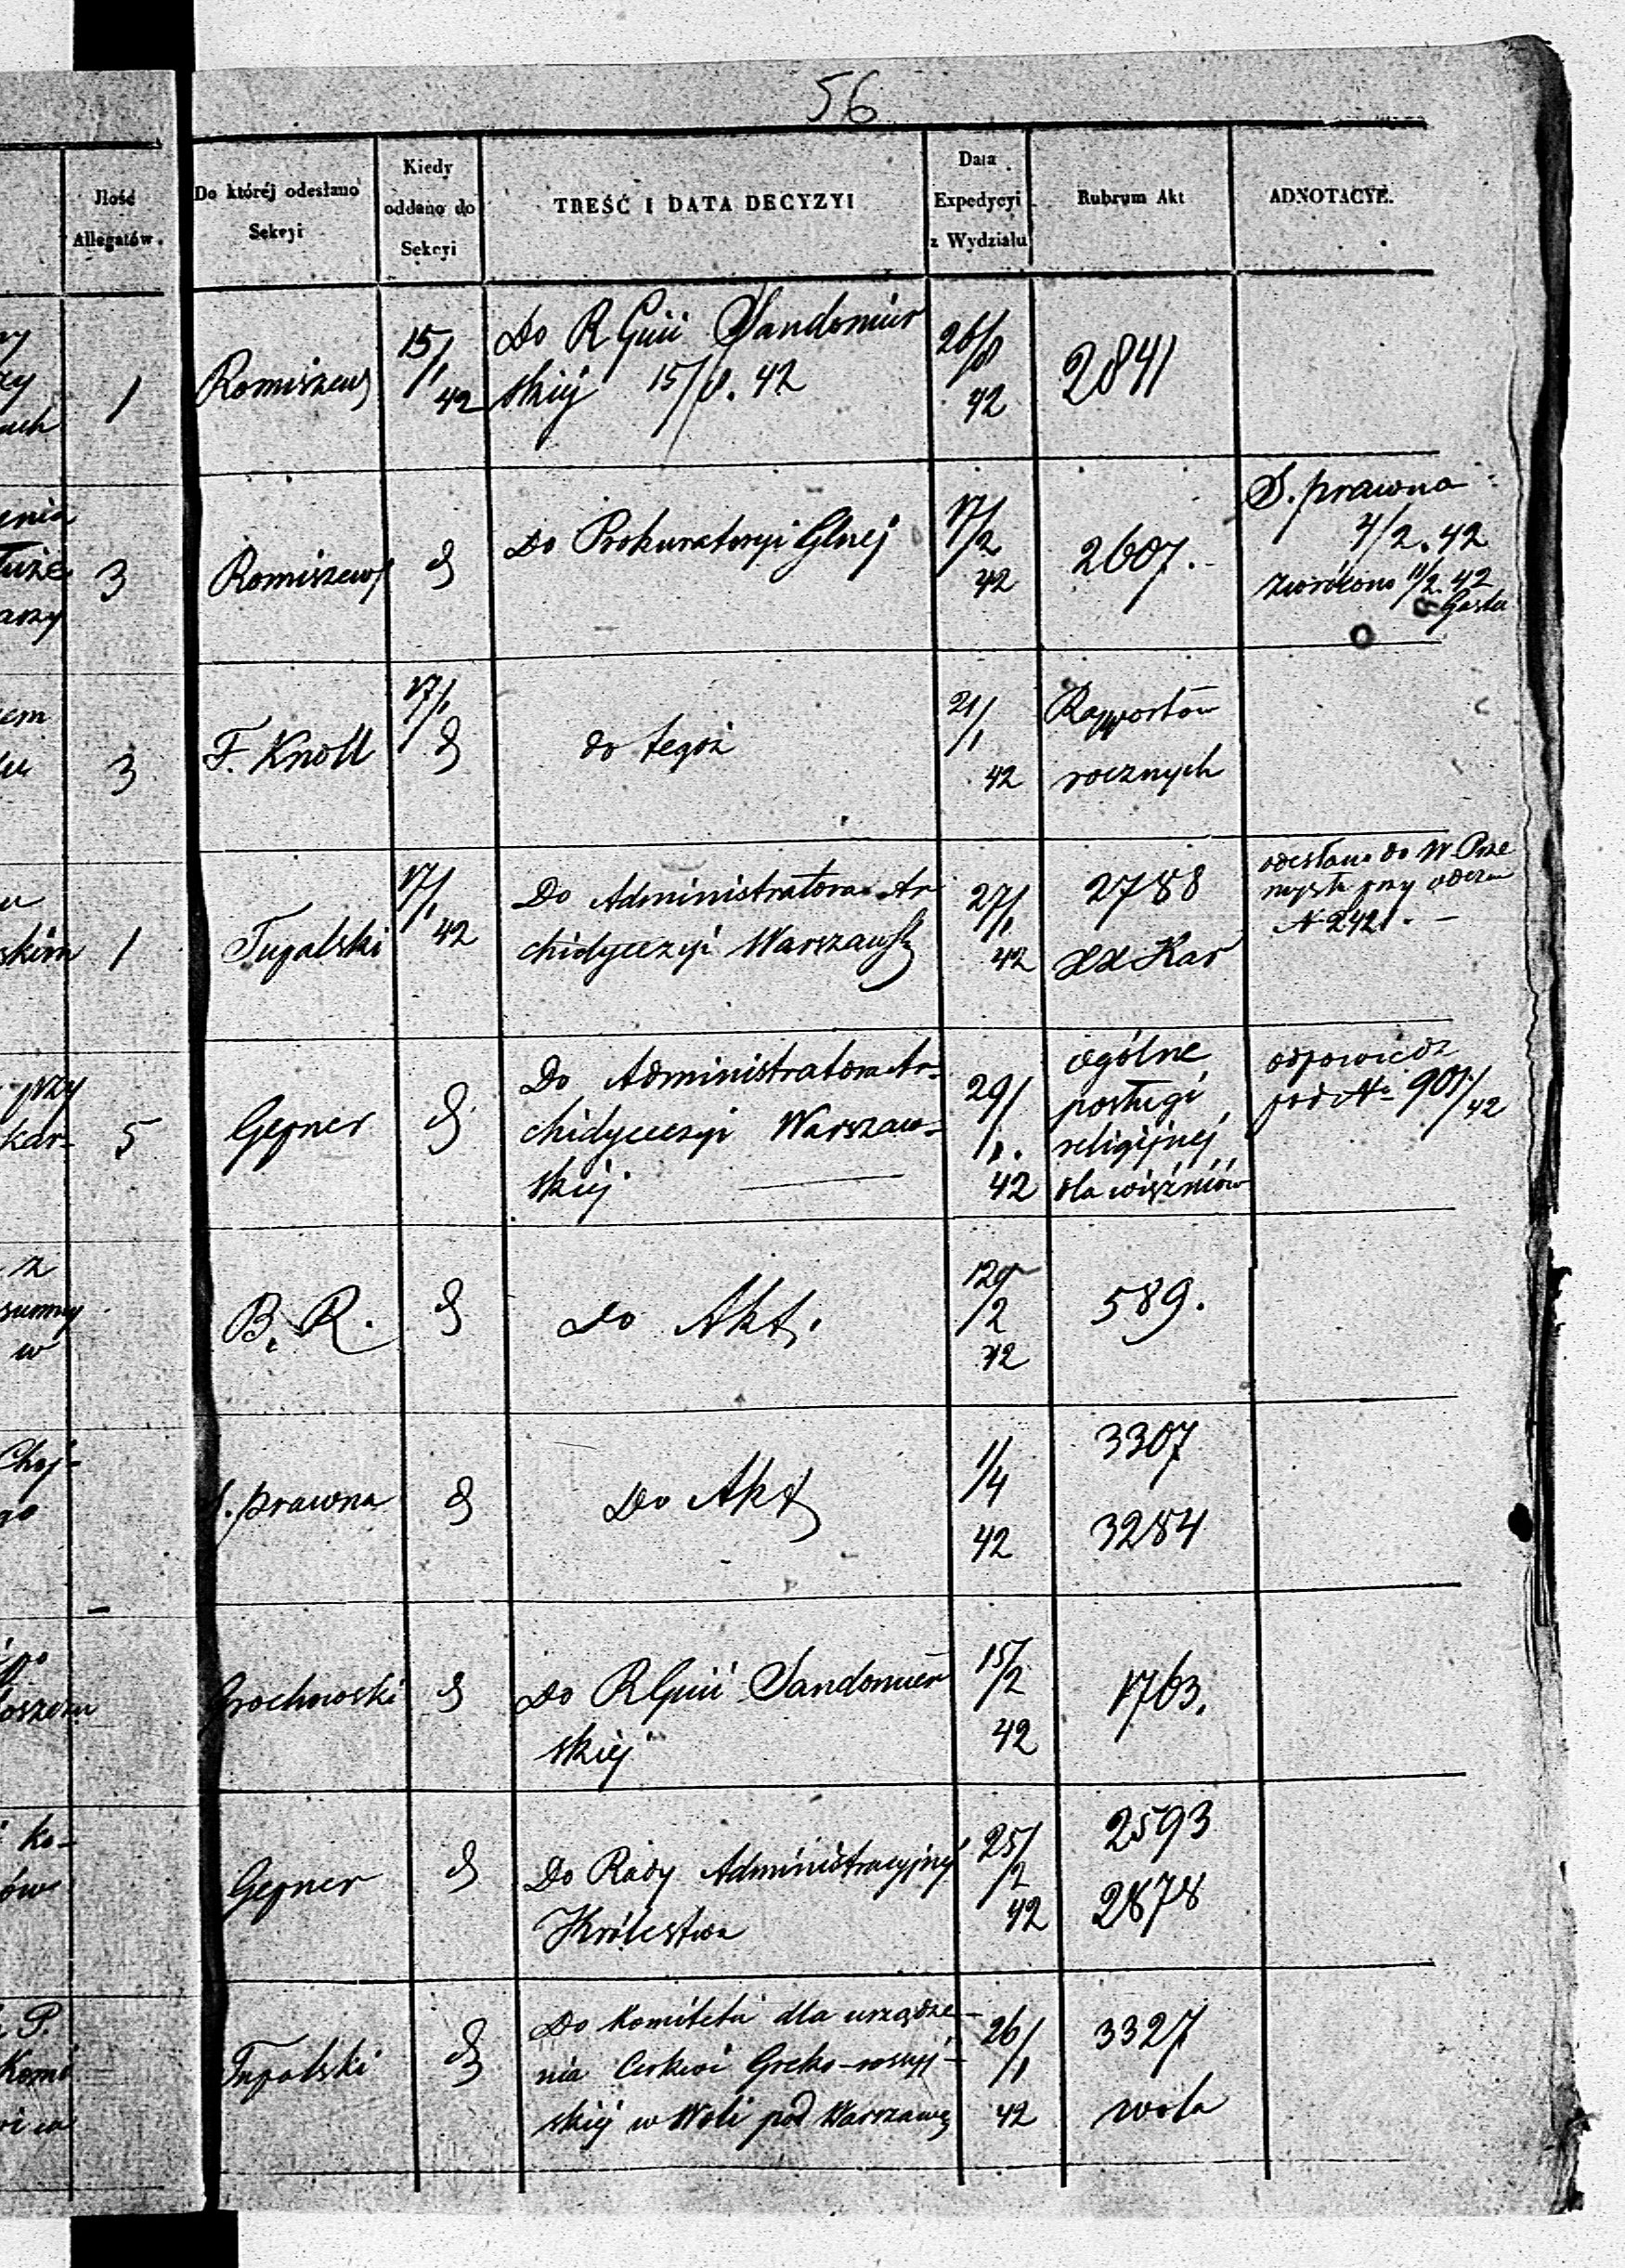 56
Jlość
Allegatów.
Do któréj odesłano
Sekcyi
Kiedy
oddano do
Sekcyi
TREŚĆ I DATA DECYZYI
Data
Expedycyi
z Wydziału
Rubrum Akt
ADNOTACYE.
1
Romiszews
15/1
42
Do R Gnii Sandomier
skiej 15/ . 42
42
2841
3
Romiszews
Do Prokuratoryi Glnej
17/2
42
2607.
S. prawna
4/2. 42
zwrócono 11/2. 42
3
F. Knoll
17/1
do tegoż
21/1
42
Rapportów
rocznych
1
Tupalski
17/1
42
Do Administratora Ar
chidyecezyi Warszaws
27/1
42
2788
XX Kar
odesłano do W. Prze
mysłu przy odezw
N 2421. —
5
Gepner
Do Administratora Ar-
chidyecezyi Warszaw-
skiej
29/1.
42
ogólne
posługi
religijnej
dla więźniów
odpowiedź
pod No 901/42
B. R.
do Akt.
/2
42
589.
S. prawna
Do Akt
1/4
42
3307
3284
Grochowski
Do R Gnii Sandomier
skiej
15/2
42
1763.
Gepner
Do Rady Administracyjnej
Królestwa
25/2
42
2593
2878
Tupalski
Do Komitetu dla urządze-
nia Cerkwi Greko-rossyj-
skiej w Woli pod Warszawą
26/1
42
3327
Wola